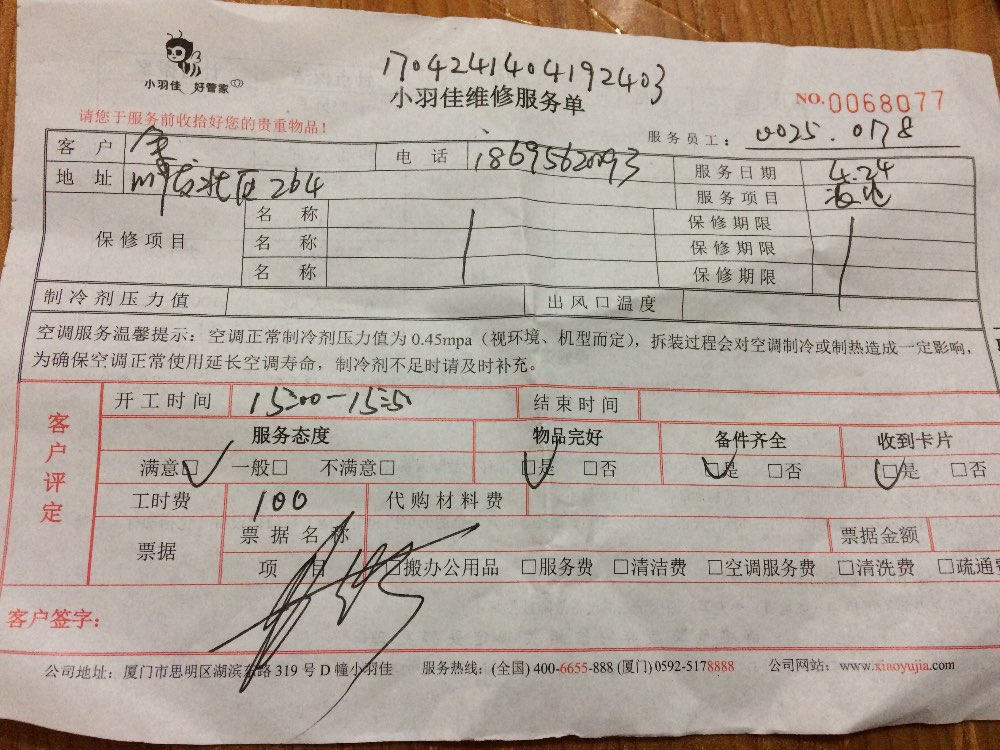 1704241404192403
小羽佳 好管家
小羽佳维修服务单
NO.0068077
请您于服务前收拾好您的贵重物品!
服务员工: 0025.078
客户 电话 服务日期 4.24
地址 264 服务项目
保修项目 名称 保修期限
名称 保修期限
名称 保修期限
制冷剂压力值 出风口温度
空调服务温馨提示:空调正常制冷剂压力值为0.45mpa(视环境、机型而定),拆装过程会对空调制冷或制热造成一定影响,
为确保空调正常使用延长空调寿命,制冷剂不足时请及时补充。
客户评定
开工时间 结束时间
服务态度 物品完好 备件齐全 收到卡片
满意□ 一般□ 不满意□ □是 □否 □是 □否 □是 □否
工时费 100 代购材料费
票据 票据名称 票据金额
项目 □搬办公用品 □服务费 □清洁费 □空调服务费 □清洗费 □疏通费
客户签字:
公司地址:厦门市思明区湖滨东路319号D幢小羽佳 服务热线:(全国)400-6655-888(厦门)0592-5178888 公司网站:www.xiaoyujia.com